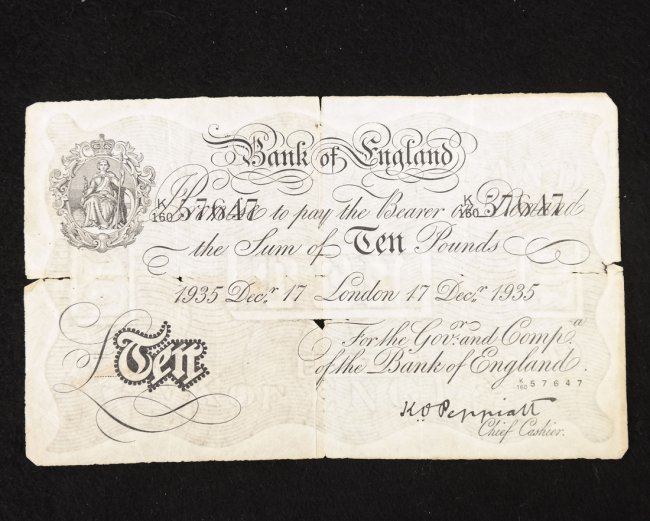 Bank of England
K/160 57647 K/160 57647
Promise to pay the Bearer on Demand
the Sum of Ten Pounds
1935 Decr. 17 London 17 Decr. 1935
For the Govr. and Compa.
of the Bank of England.
K/160 57647
£Ten
K O Peppiatt
Chief Cashier.